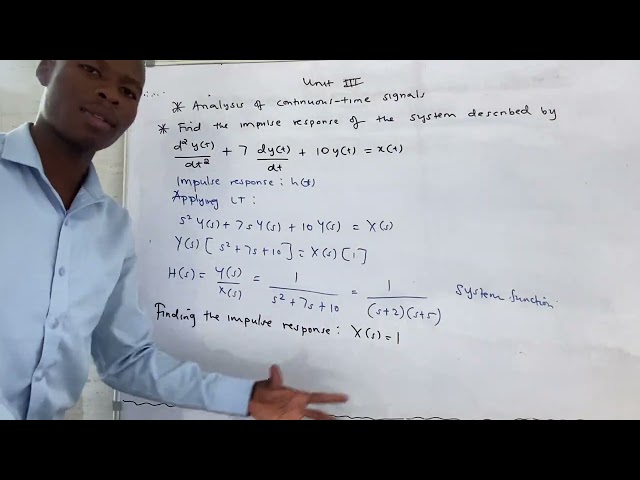 Unit III
* Analysis of continuous-time signals
* Find the impulse response of the system described by
d²y(t)/dt² + 7 dy(t)/dt + 10y(t) = x(t)
Impulse response: h(t)
Applying LT:
s²Y(s) + 7sY(s) + 10Y(s) = X(s)
Y(s)[s² + 7s + 10] = X(s)[1]
H(s) = Y(s)/X(s) = 1/s² + 7s + 10 = 1/(s+2)(s+5) System function
Finding the impulse response: X(s) = 1